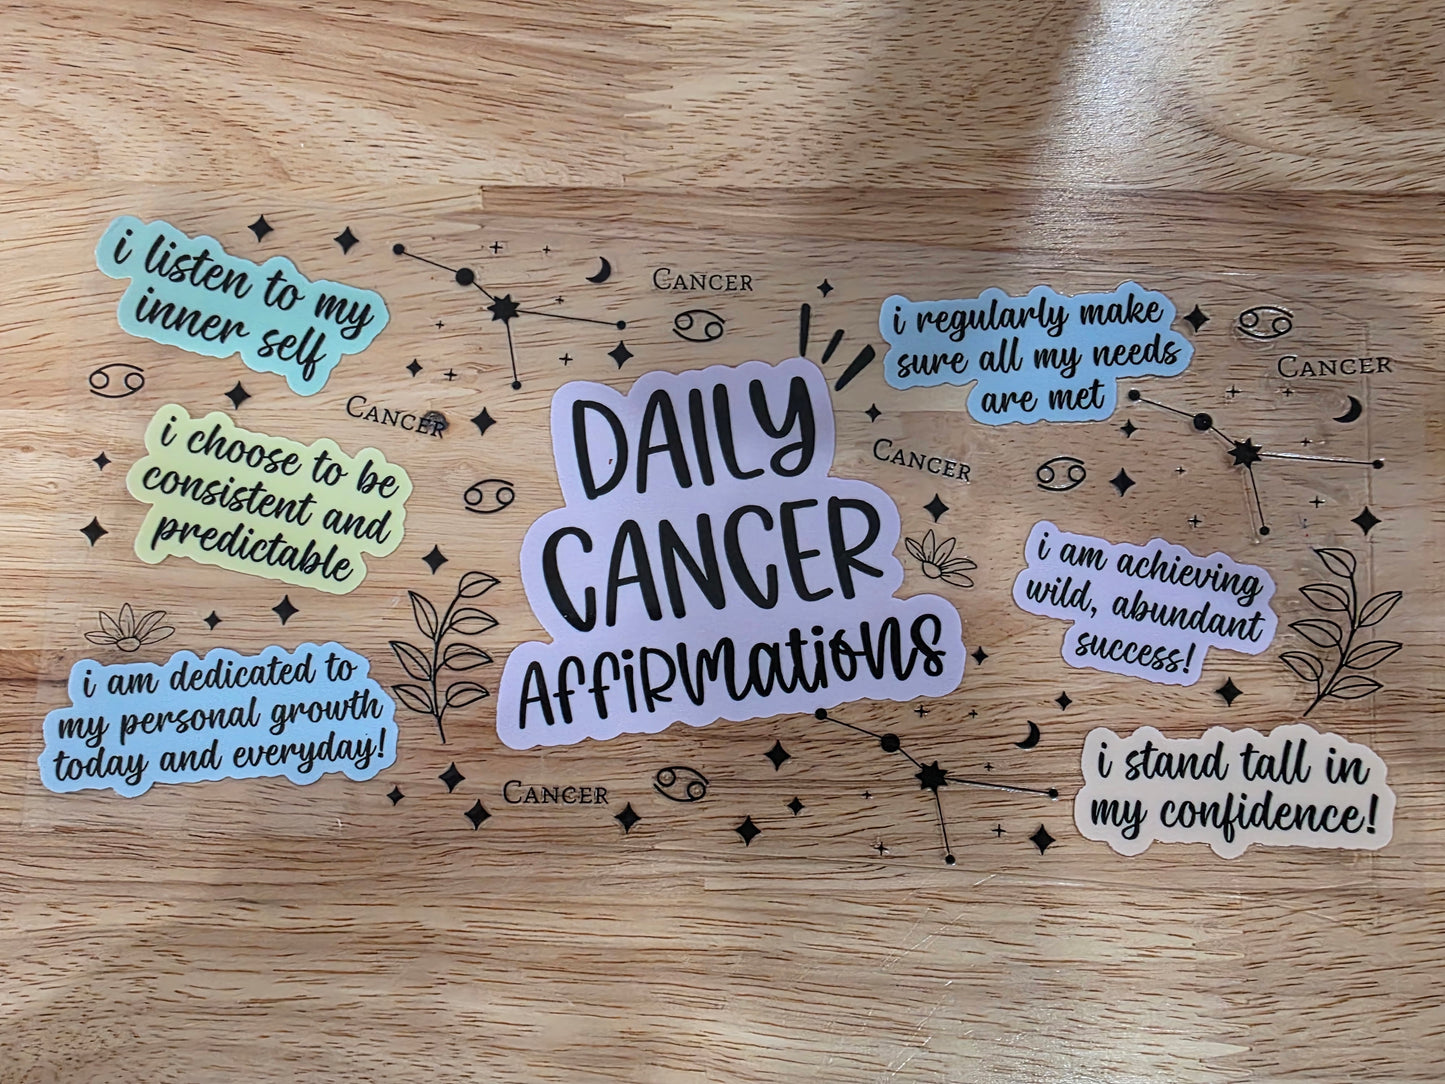 i listen to my
inner self
Cancer
i choose to be
consistent and
predictable
i am dedicated to
my personal growth
today and everyday!
Cancer
DAILY
CANCER
AFFiRMatioNs
Cancer
i regularly make
sure all my needs
are met
Cancer
Cancer
i am achieving
wild, abundant
success!
i stand tall in
my confidence!